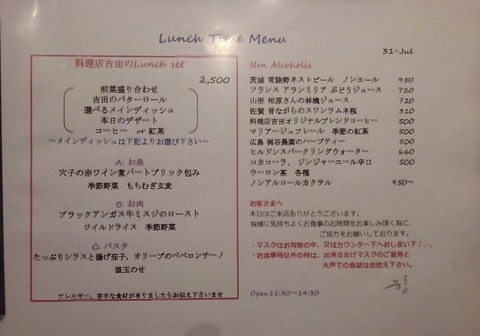 Lunch Time Menu
31-Jul
料理店吉田のLunch set
2,500
前菜盛り合わせ
吉田のバターロール
選べるメインディッシュ
本日のデザート
コーヒー or 紅茶
～メインディッシュは下記よりお選び下さい～
A: お魚
穴子の赤ワイン煮パートブリック包み
季節野菜 もちむぎ玄麦
B: お肉
ブラックアンガス牛ミスジのロースト
ワイルドライス 季節野菜
C: パスタ
たっぷりシラスと揚げ茄子、オリーブのペペロンチーノ
温玉のせ
アレルギー、苦手な食材が有りましたらお伝え下さいませ
Non Alcoholic
茨城 常陸野ネストビール ノンエール 950
フランス アランミリア ぶどうジュース 720
山形 相原さんの林檎ジュース 720
佐賀 昔ながらのスワンラムネ瓶 310
料理店吉田オリジナルブレンドコーヒー 500
マリアージュフレール 季節の紅茶 500
広島 梶谷農園のハーブティー 500
ヒルドンスパークリングウォーター 660
コカコーラ、ジンジャーエール辛口 500
ウーロン茶 各種 500
ノンアルコールカクテル 950～
お客さまへ
本日はご来店ありがとうございます。
皆様に気持ちよくお食事のお時間をお楽しみ頂く為に、
ご協力をお願いしております。
・マスクはお荷物の中、又はカウンター下へお しまい下さい。
・お食事時以外の時は、出来るだけマスクのご着用と
大声での会話はお控え下さい。
Open.11:30～14:30